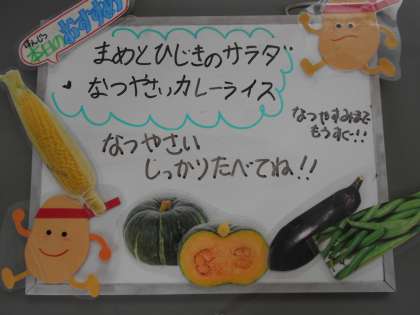 ほんじつ
本日のおすすめ
まめとひじきのサラダ
なつやさいカレーライス
なつやさい
しっかりたべてね!!
なつやすみまで
もうすぐ…!!